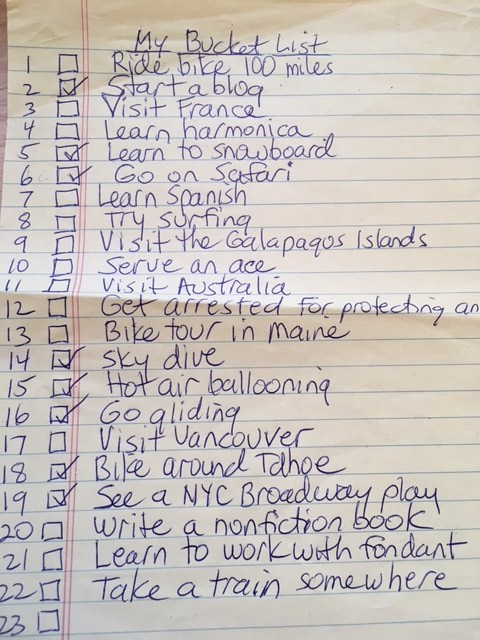 My Bucket List
1 ☐ Ride bike 100 miles
2 ☑ Start a blog
3 ☐ Visit France
4 ☐ Learn harmonica
5 ☑ Learn to snowboard
6 ☑ Go on Safari
7 ☐ Learn Spanish
8 ☐ Try surfing
9 ☐ Visit the Galapagos Islands
10 ☐ Serve an ace
11 ☐ Visit Australia
12 ☐ Get arrested for protecting an
13 ☐ Bike tour in Maine
14 ☑ Sky dive
15 ☑ Hot air ballooning
16 ☑ Go gliding
17 ☐ Visit Vancouver
18 ☑ Bike around Tahoe
19 ☑ See a NYC Broadway play
20 ☐ Write a nonfiction book
21 ☐ Learn to work with fondant
22 ☐ Take a train somewhere
23 ☐